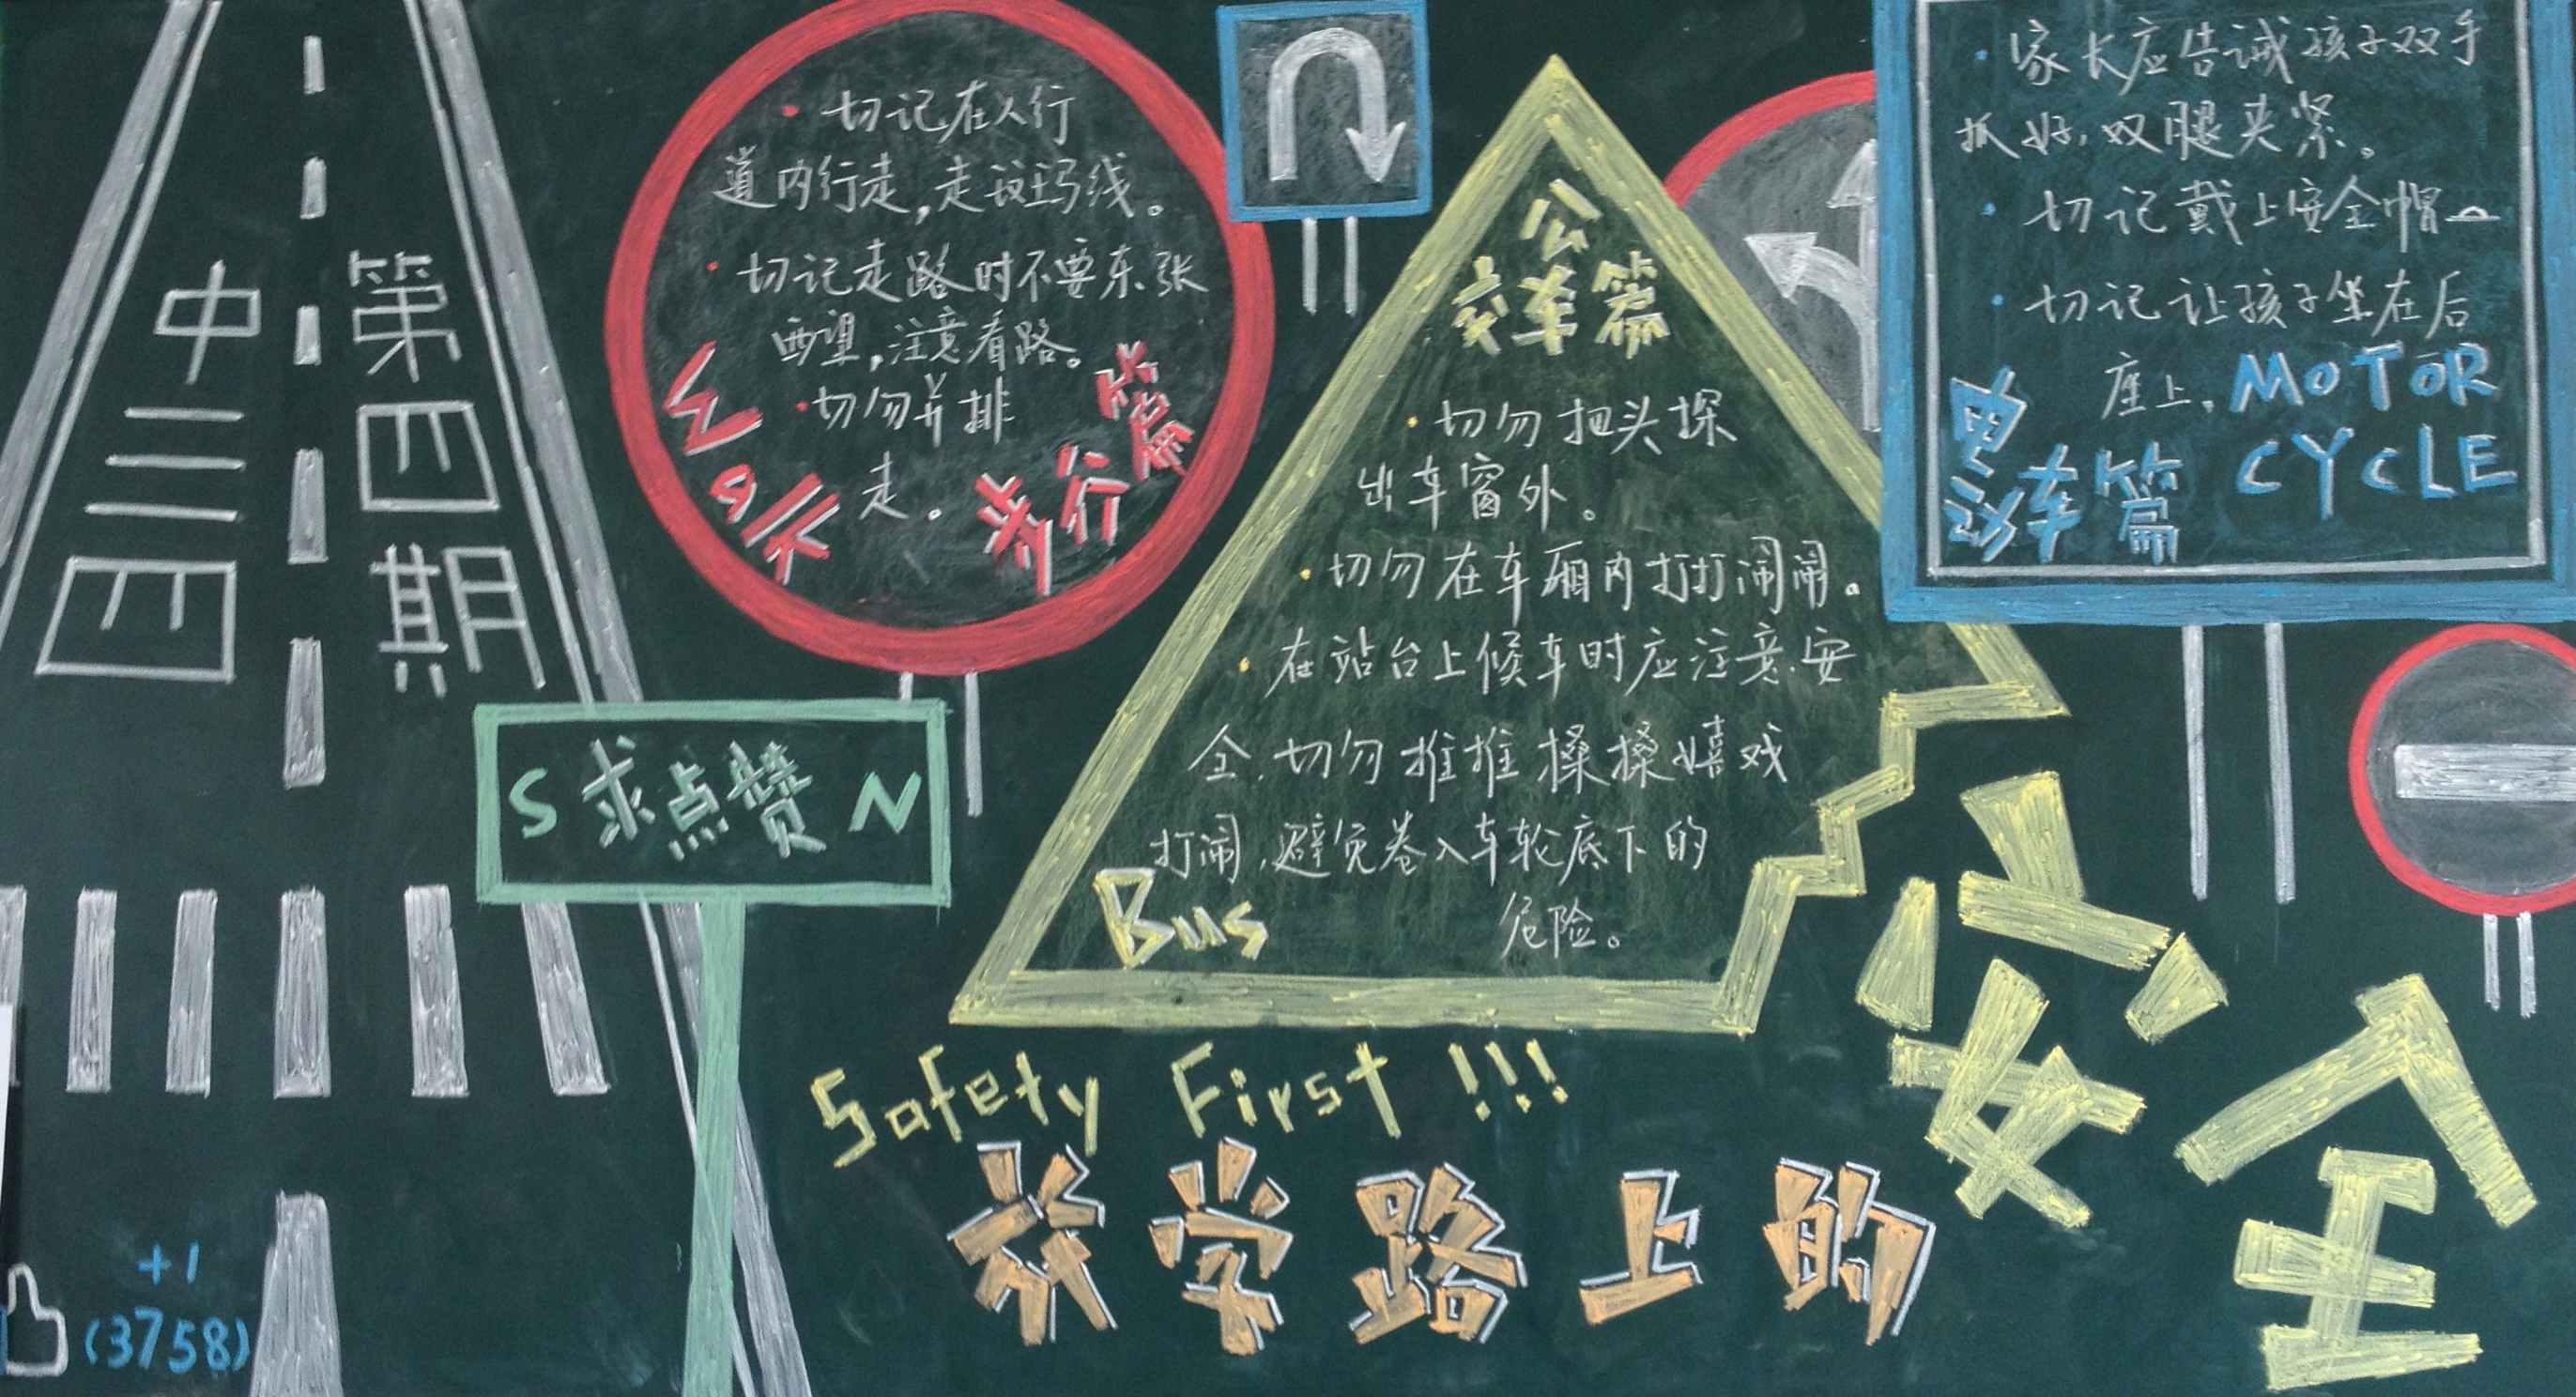 中三四
第四期
• 切记在人行
道内行走,走斑马线。
• 切记走路时不要东张
西望,注意看路。
• 切勿并排
走。
Walk
步行篇
公
交车篇
• 切勿把头探
出车窗外。
• 切勿在车厢内打打闹闹。
• 在站台上候车时应注意安
全,切勿推推搡搡嬉戏
打闹,避免卷入车轮底下的
危险。
Bus
• 家长应告诫孩子双手
抓好,双腿夹紧。
• 切记戴上安全帽
• 切记让孩子坐在后
座上,
MOTOR
CYCLE
电
动车篇
S 求点赞 N
Safety First !!!
放学路上的
安全
+1
(3758)